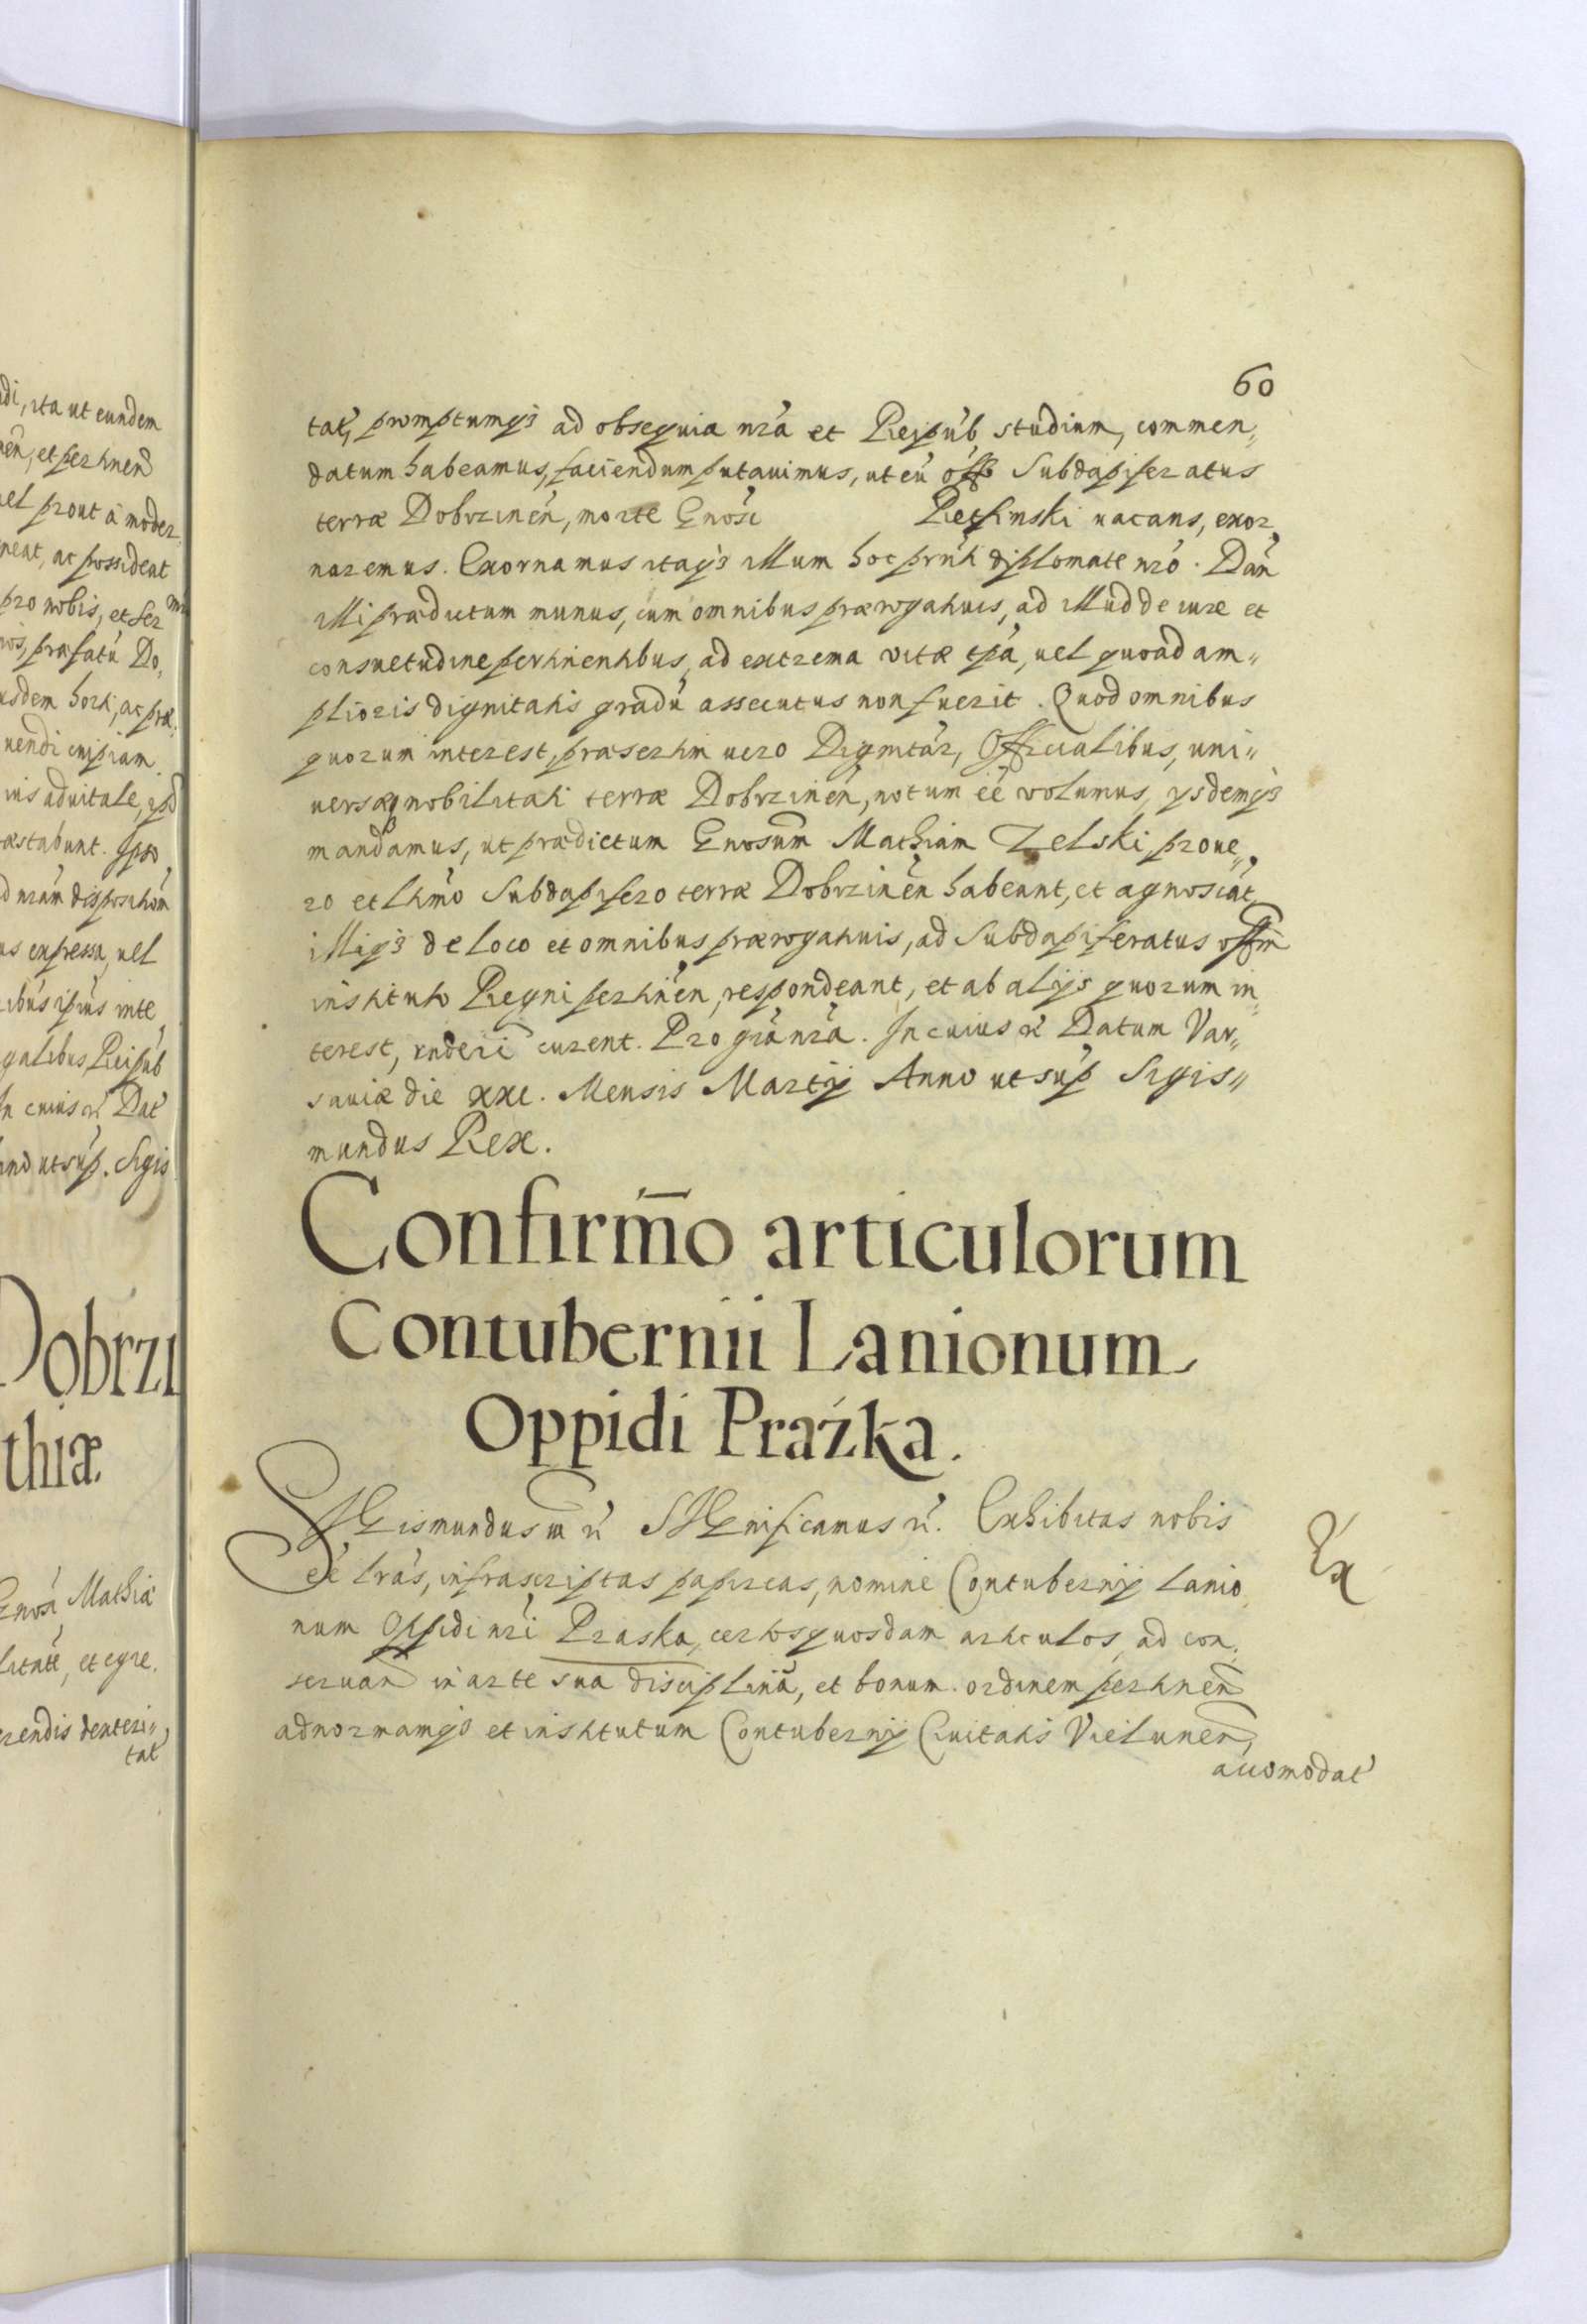 di, ita ut eundem
nen̄, et pertinen̄
uel prout à moder„
neat, ac possident
pro nobis, et Ser
nr̄is, præfatū Do„
usdem horti, ac præ„
uendi cuipiam
ius aduitale, ip̄o
æstabunt. Ipso
d nr̄am disposit̄iom
us expressa, uel
ibus ip̄ius inte„
galibus Reipub
In cuius rei Dat̄
nno ut sup. Sigis
Dobrzi
thiæ.
Gn̄osi Mathiæ
litate, et egre.
rendis dexteri„
tat̄
60
tat̄, promptumq3 ad obsequia nr̄a et Reipub̄ studium, commen„
datum habeamus, faciendum putauimus, ut eū off̄o Subdapiferatus
terræ Dobrzinēn, morte Gn̄osi Rethinski uacans, exor„
naremus. Exornamus itaq3 illum hoc prn̄ti diplomate nr̄o. Dān
illi prædictum munus, cum omnibus prærogatiuis, ad illud de iure et
consuetudine pertinentibus, ad extrema vitæ tp̄a, uel quoad am„
plioris dignitatis gradū assecutus non fuerit. Quod omnibus
quorum interest, præsertim uero Dignitār, Officialibus, uni„
uersæq3 nobilitati terræ Dobrzinēn, notum eē volumus, ysdemq3
mandamus, ut prædictum Gn̄osum Mathiam Zelski, pro ue„
ro et l̄timo Subdapifero terræ Dobrzinēn habeant, et agnoscāt,
illiq3 de loco et omnibus prærogatiuis, ad Subdapiferatus off̄m
instituto Regni pertinēn, respondeant, et ab alijs quorum in„
terest, rn̄deri curent. Pro grā nr̄a. In cuius rei Datum Var„
sauiæ die xxi. Mensis Martij Anno ut sup̄ Sigis„
mundus Rex.
Confirm̄o articulorum
Contubernii Lanionum
Oppidi Praźka.
SIGismundus III rc̄ SIGnificamus rc̄. Exhibitas nobis
eē lrās, infrascriptas papireas, nomine Contubernij Lanio„
num Oppidi nr̄i Praska, certos quosdam articulos, ad con„
seruan̄ in arte sua disciplinā, et bonum ordinem pertinen̄
ad normamq3 et institutum Contubernij Ciuitatis Vielunen̄,
accomodat̄